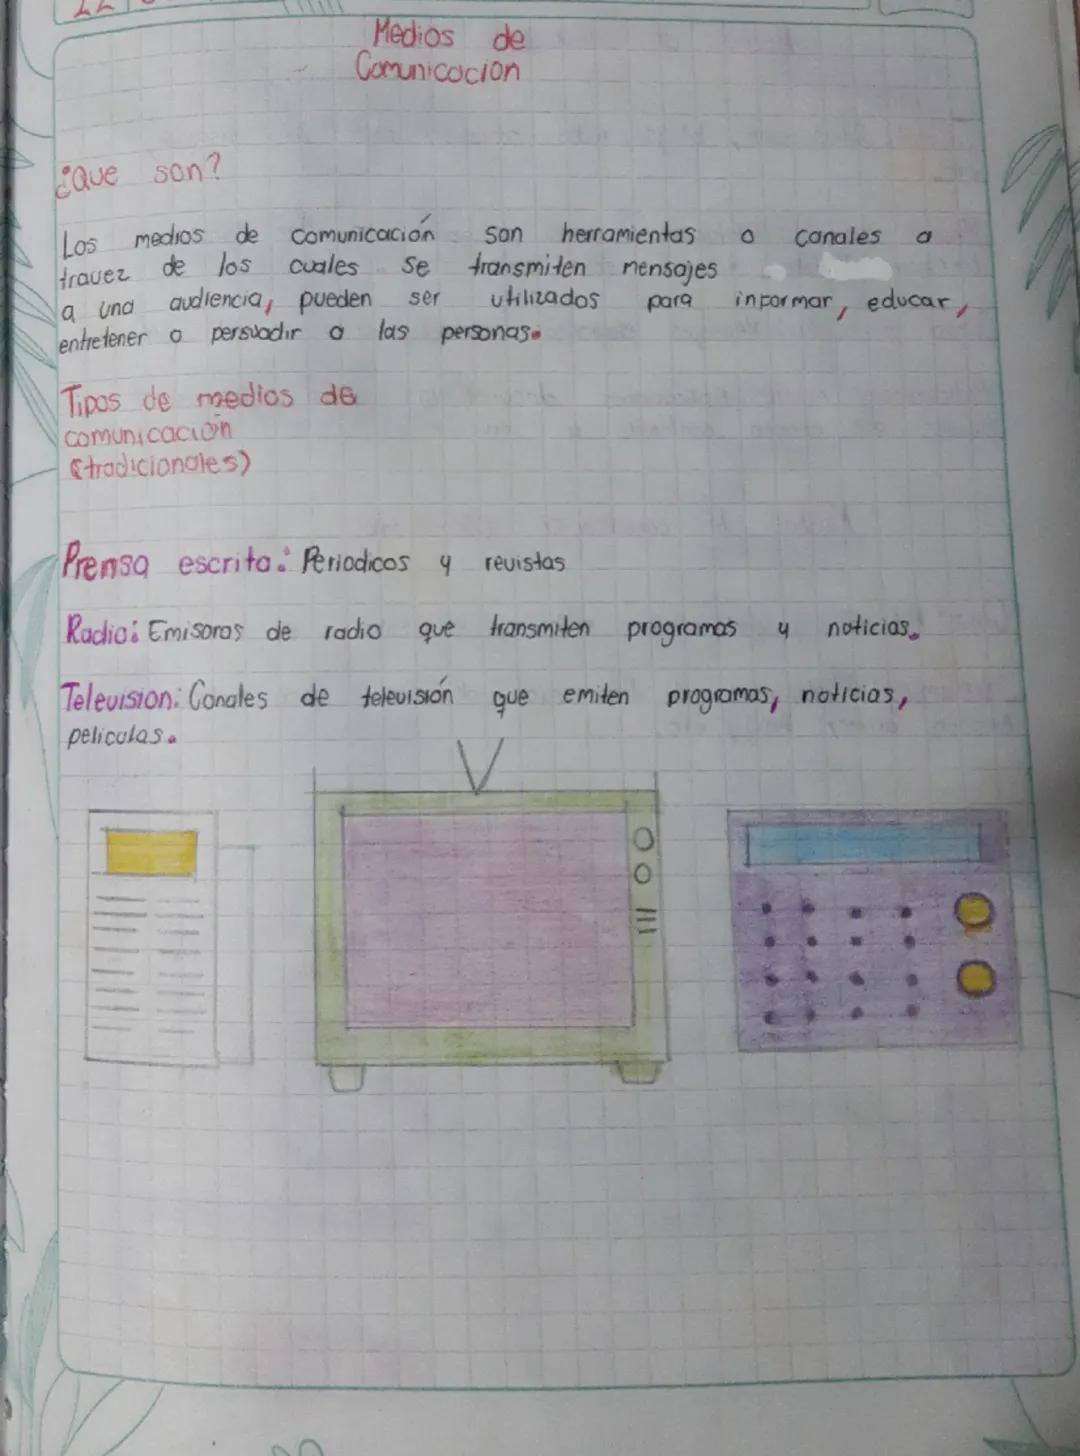 Medios de
Comunicacion
¿Que son?
Los medios de comunicación son herramientas o canales a
travez de los cuales se transmiten mensajes
a una audiencia, pueden ser utilizados para informar, educar,
entretener o persuadir a las personas.
Tipos de medios de
comunicación
(tradicionales)
Prensa escrita: Periodicos y revistas
Radio: Emisoras de radio que transmiten programas y noticias.
Television: Canales de televisión que emiten programas, noticias,
peliculas.